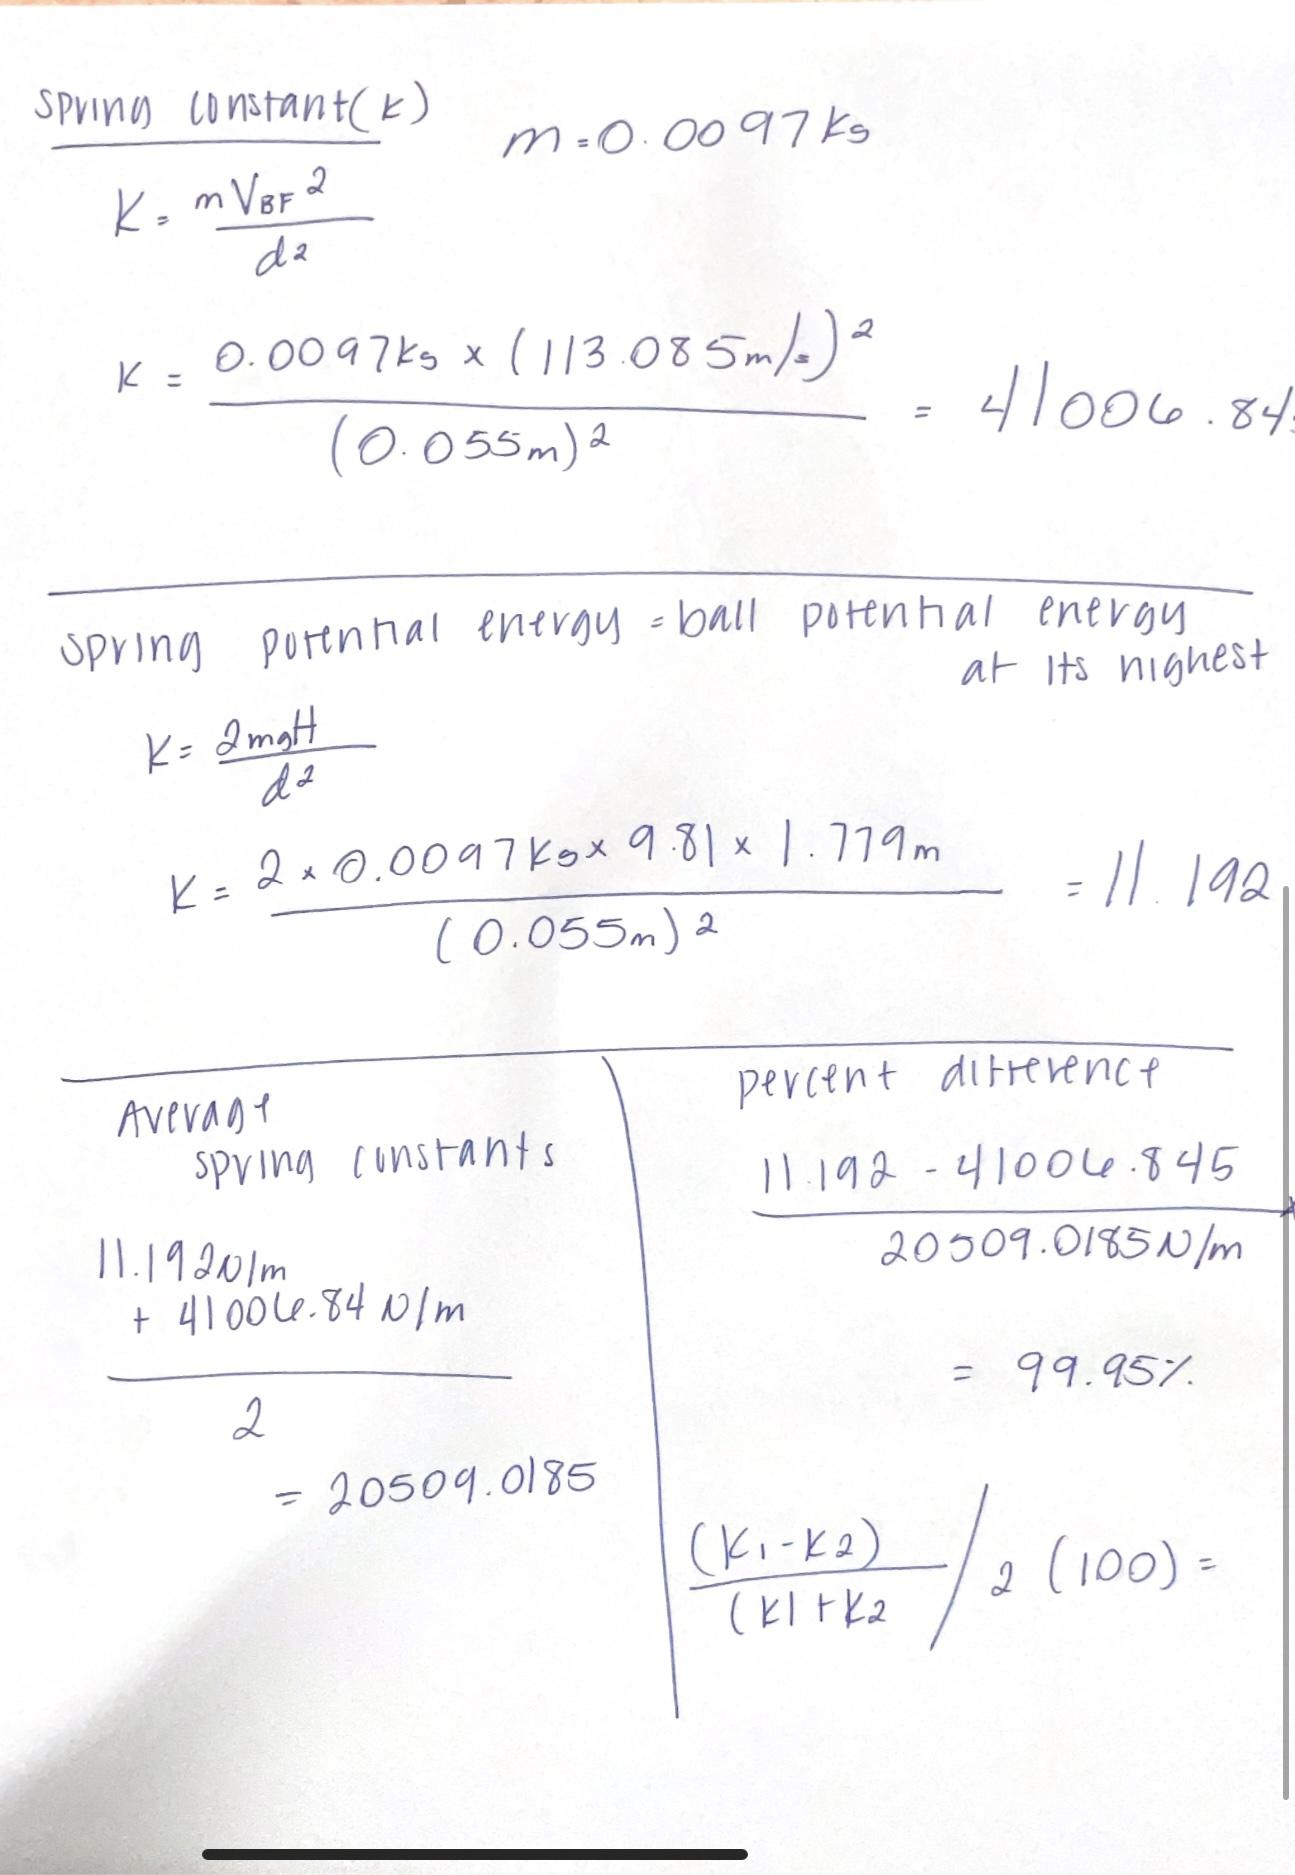 Spring constant(k)
m=0.0097kg
K= mVBF²
d²
K = 0.0097kg x (113.085m/s)² = 41006.84
(0.055m)²
spring potential energy = ball potential energy
at its highest
K= 2mgH
d²
K= 2x0.0097kgx 9.81 x 1.779m =11.192
(0.055m)²
Average
spring constants
11.192N/m
+ 41006.84 N/m
2
= 20509.0185
percent difference
11.192 - 41006.845
20509.0185N/m
= 99.95%
(K1-K2) / 2 (100) =
(K1+K2